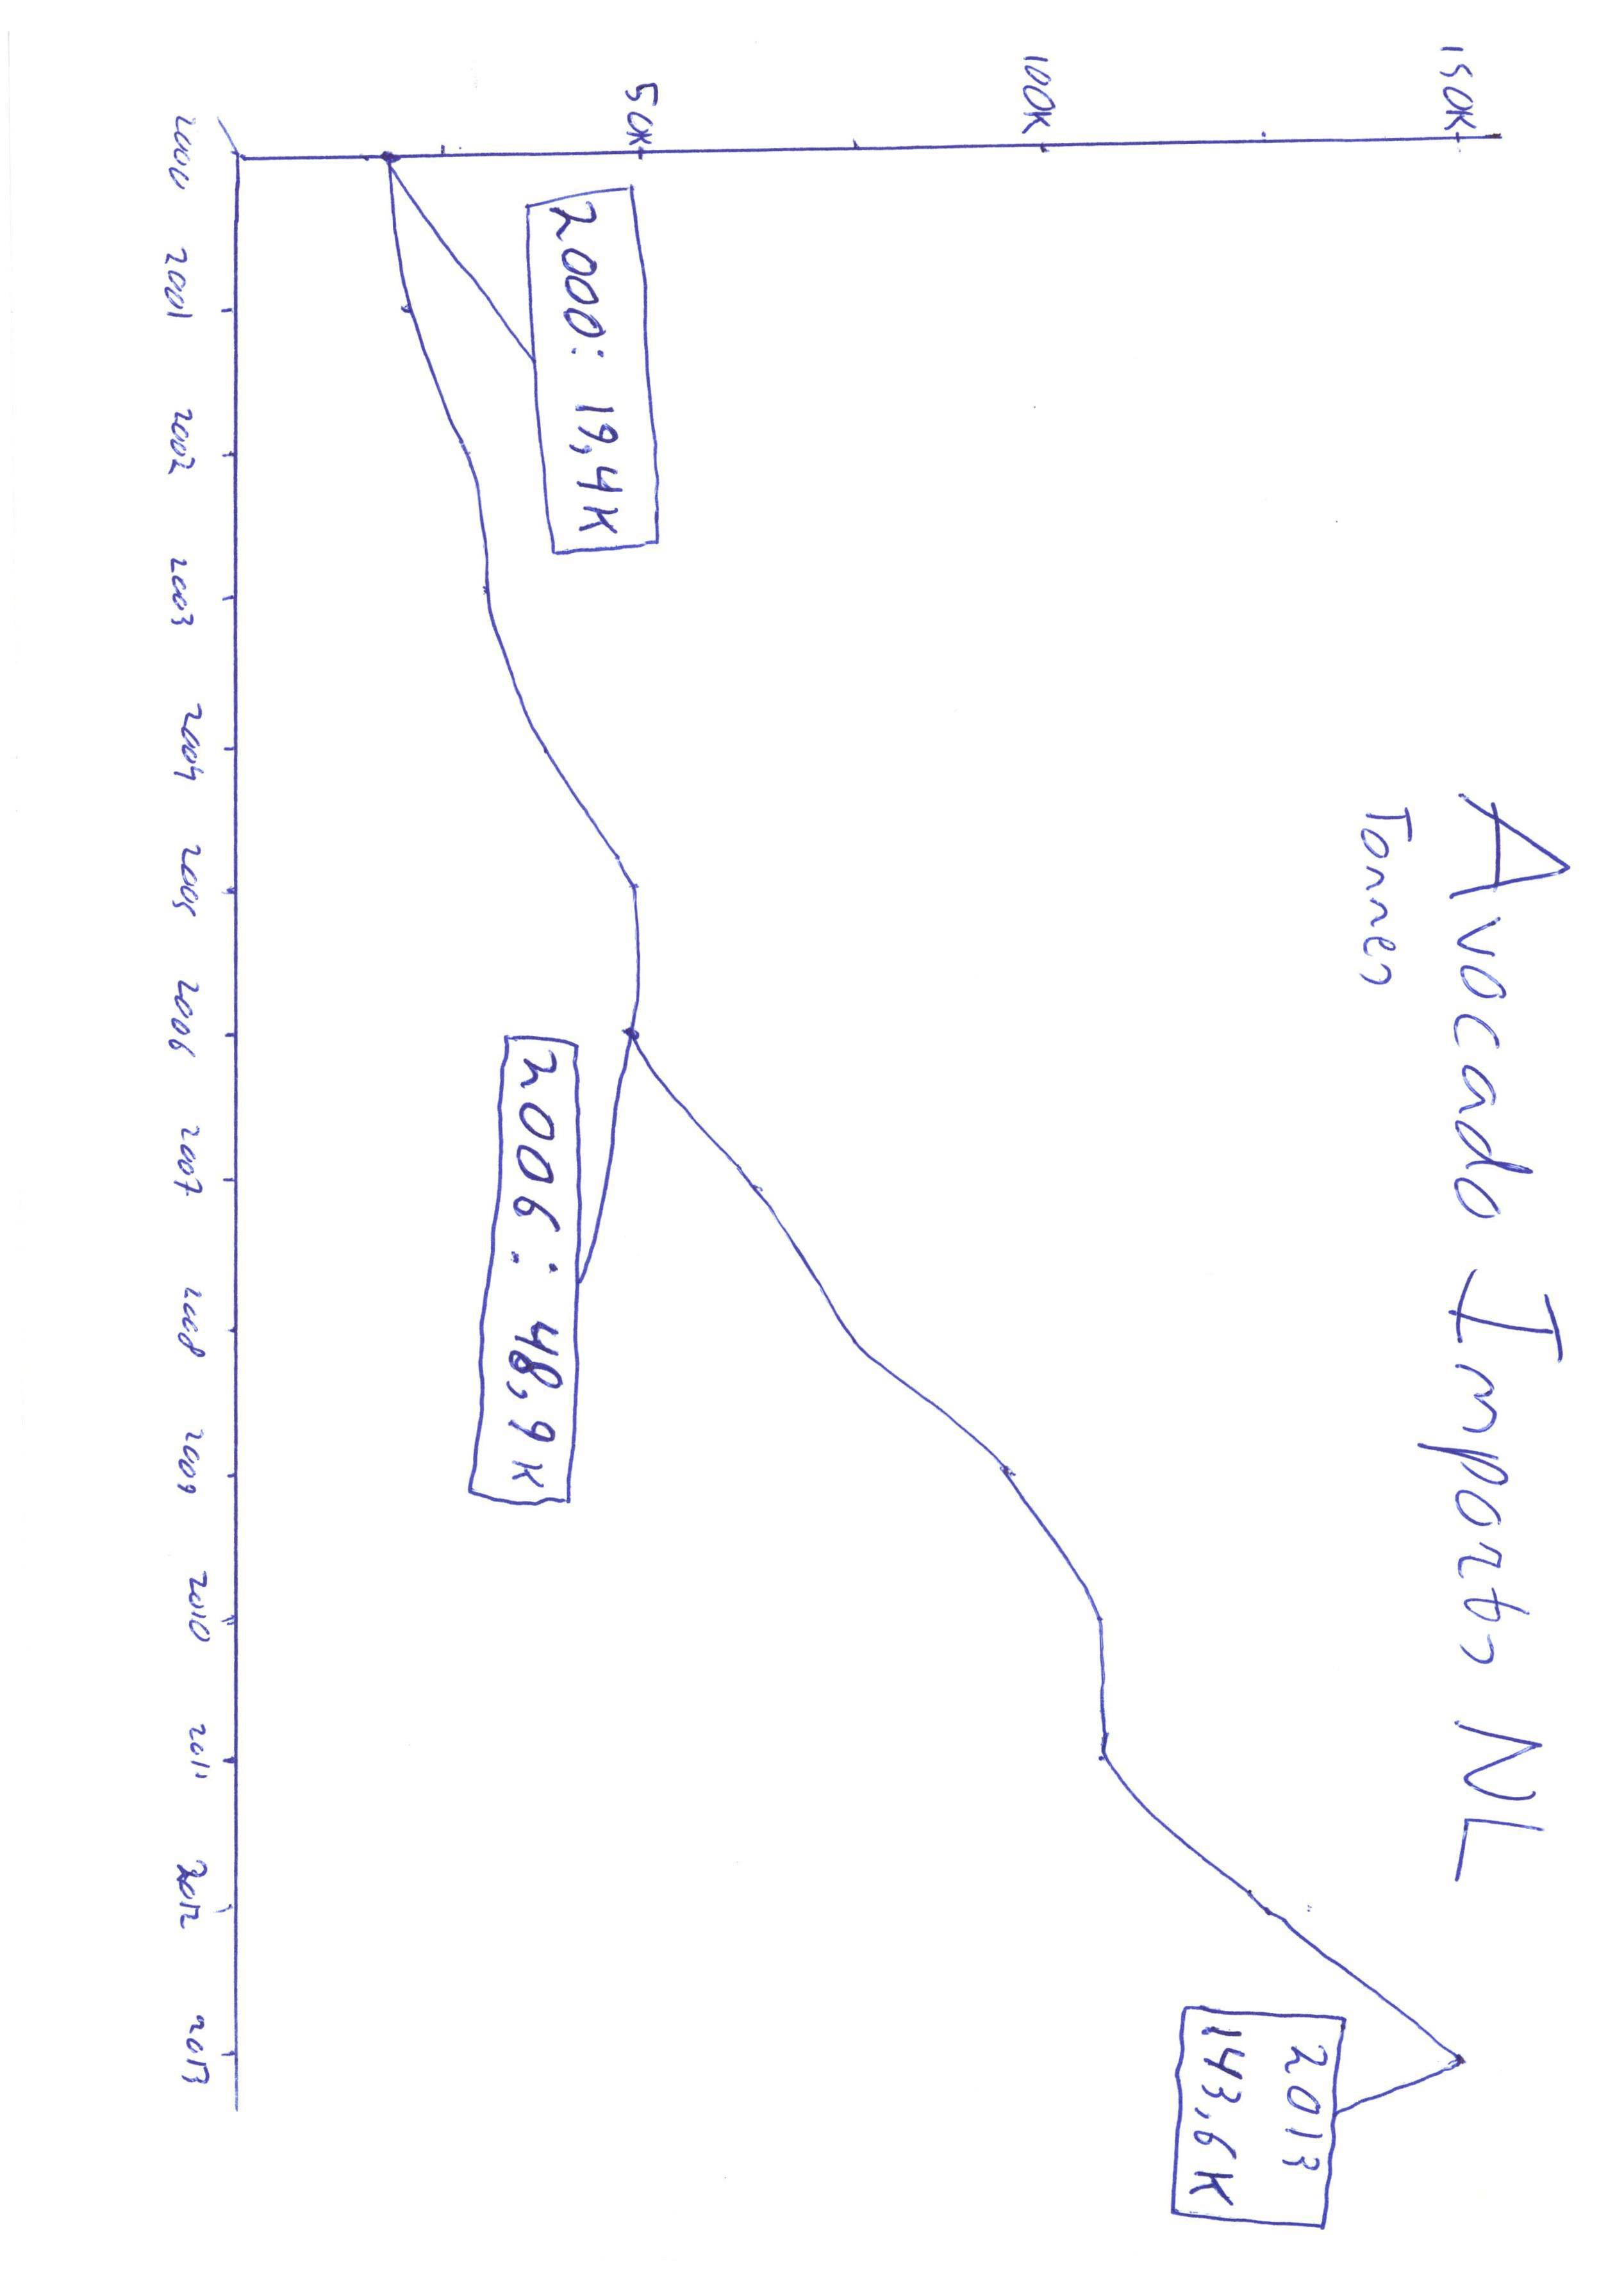 Avocado Imports NL
Tonnes
150K
100K
50K
2000: 19,4K
2006: 48,9K
2013
143,6K
2000 2001 2002 2003 2004 2005 2006 2007 2008 2009 2010 2011 2012 2013